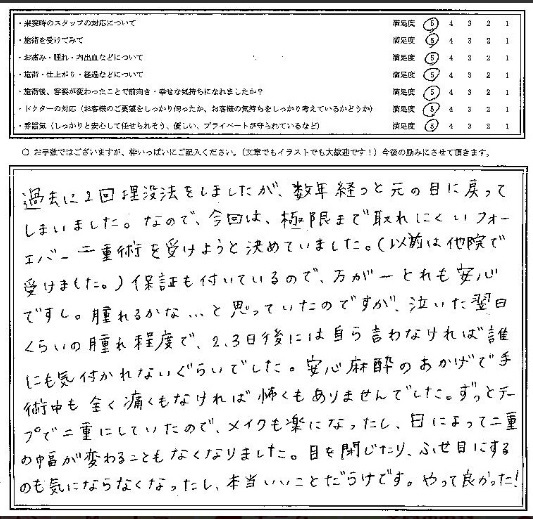 ・来院時のスタッフの対応について 満足度 5 4 3 2 1
・施術を受けてみて 満足度 5 4 3 2 1
・お痛み・腫れ・内出血などについて 満足度 5 4 3 2 1
・施術・仕上がり・経過などについて 満足度 5 4 3 2 1
・施術後、容姿が変わったことで前向き・幸せな気持ちになれましたか？ 満足度 5 4 3 2 1
・ドクターの対応（お客様のご要望をしっかり伺ったか、お客様の気持ちをしっかり考えているかどうか） 満足度 5 4 3 2 1
・雰囲気（しっかりと安心して任せられそう、優しい、プライベートが守られているなど） 満足度 5 4 3 2 1
○ お手数ではございますが、枠いっぱいにご記入ください。（文章でもイラストでも大歓迎です！）今後の励みにさせて頂きます。
過去に2回埋没法をしましたが、数年経つと元の目に戻って
しまいました。なので、今回は、極限まで取れにくいフォー
エバー二重術を受けようと決めていました。（以前は他院で
受けました。）保証も付いているので、万が一とれも安心
ですし。腫れるかな…と思っていたのですが、泣いた翌日
くらいの腫れ程度で、2、3日後には自ら言わなければ誰
にも気付かれないぐらいでした。安心麻酔のおかげで手
術中も全く痛くもなければ怖くもありませんでした。ずっとテー
プで二重にしていたので、メイクも楽になったし、日によって二重
の幅が変わることもなくなりました。目を閉じたり、ふせ目にする
のも気にならなくなったし、本当いいことだらけです。やって良かった！